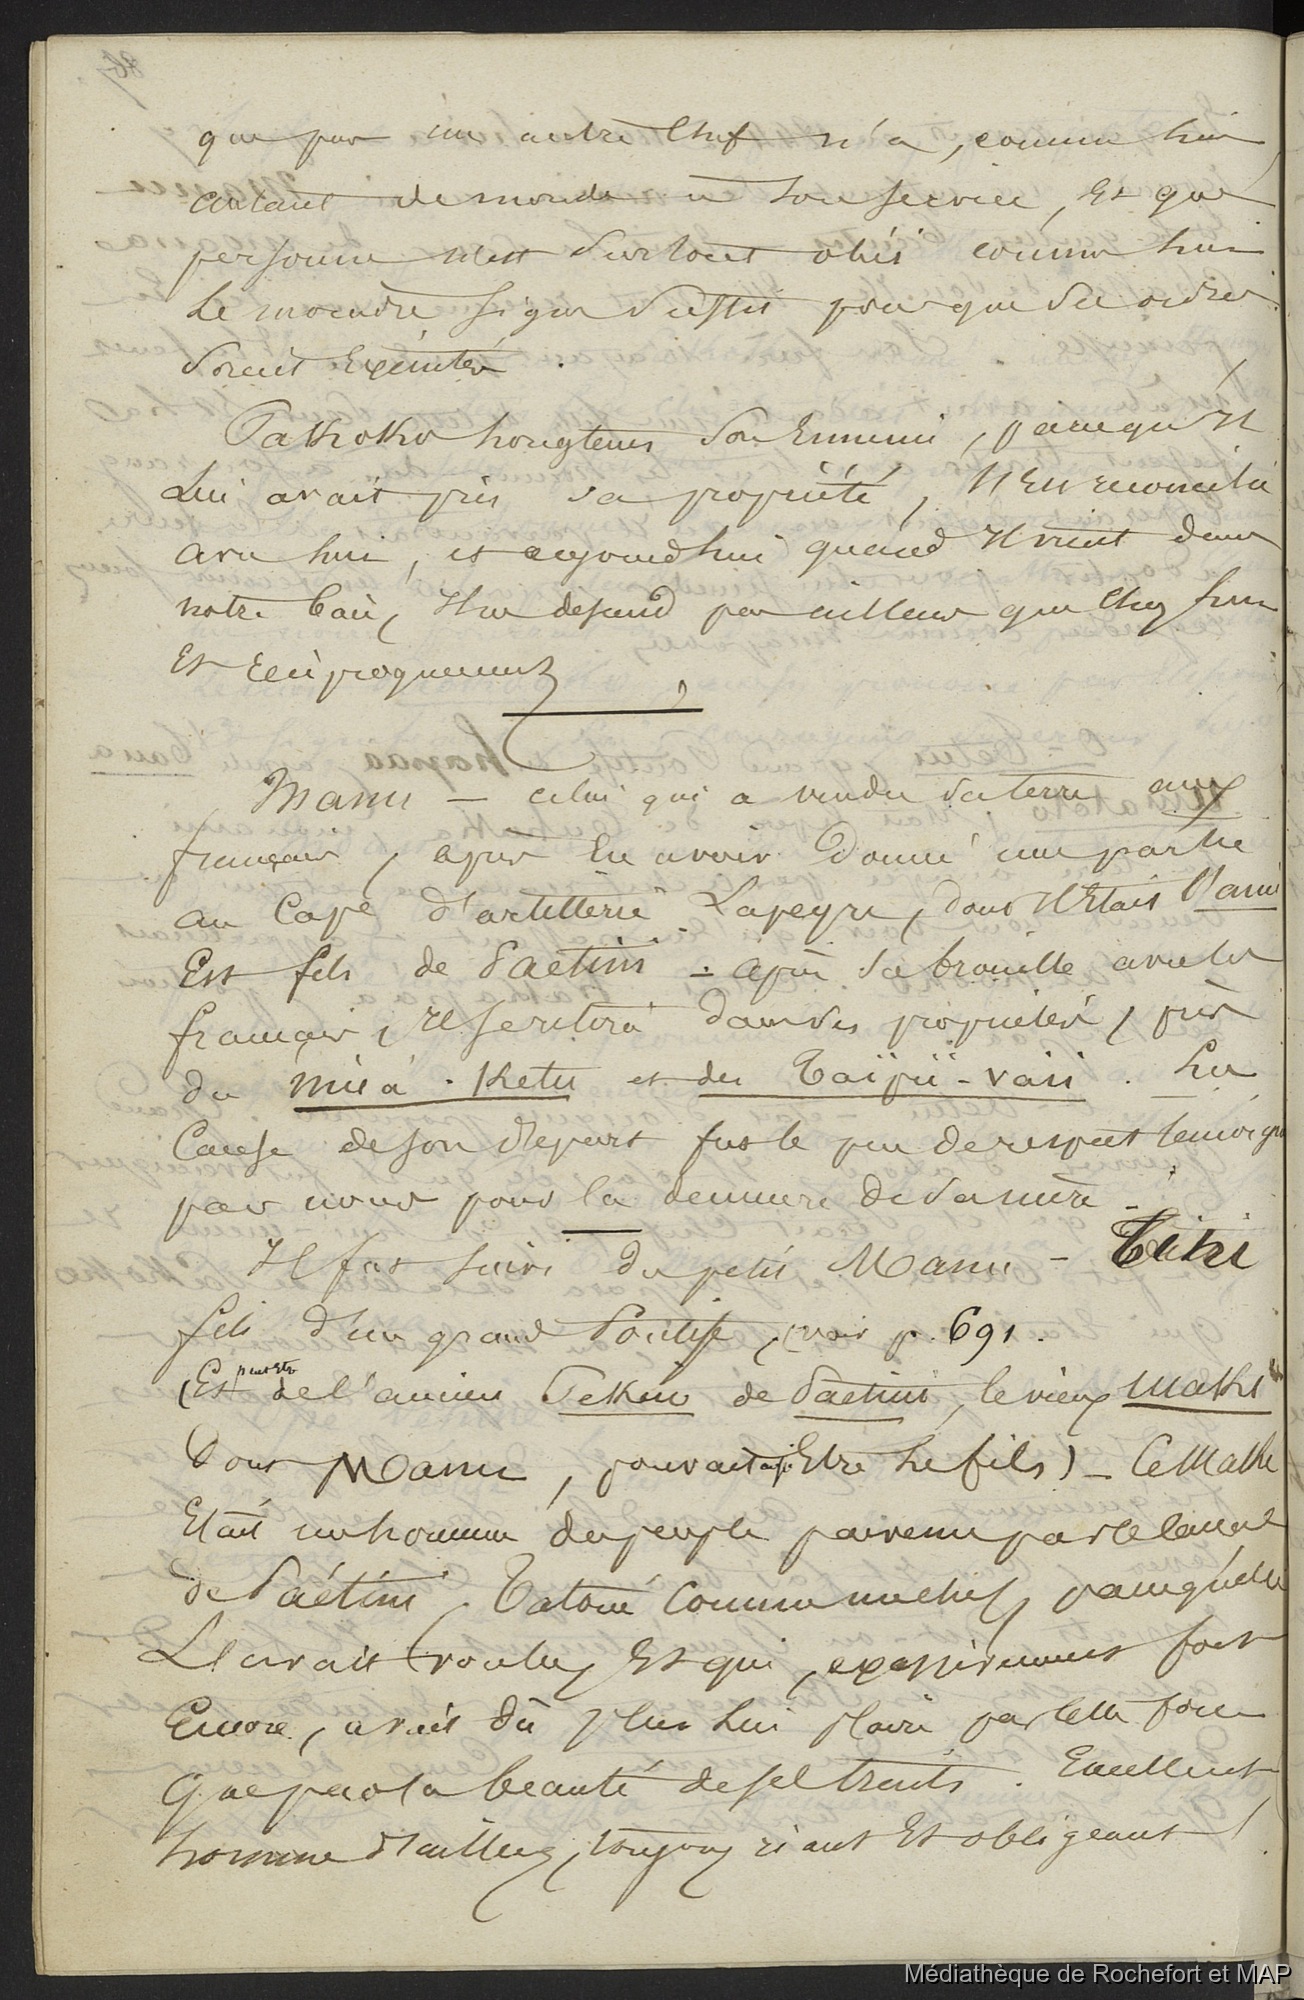 que pas un autre Chef n'a, comme lui
autant de monde a son service, et que
personne n'est surtout obéi comme lui
Le moindre signe suffit pour que ses ordres
soient Exécutés.
Pakoko longtems son Ennemi, parcequ'il
Lui avait pris sa propriété, s'est réconcilié
avec lui, et aujourd'hui quand il vient dans
notre baie, il ne descend pas ailleurs que chez lui
Et réciproquement
Manu — celui qui a vendu sa terre aux
français, après en avoir donné une partie
au Cape d'artillerie Lapeyre, dont il Etait l'ami
Est fils de Paetini - après sa brouille avec les
français, il se retira dans ses propriétés, près
du Mua-Ketu et du Taïpii-vaii. La
Cause de son départ fut le peu de respect témoigné
par nous pour la demeure de sa mère -
Il fut suivi du petit Manu - Teiki
fils d'un grand Pontife, (voir p. 691.
(Est peut etre de l'ancien Pekio de Paetini, le vieux Maheö
dont Manu, pouvait Etre le fils) - Ce Mahe
Etait un homme du peuple parvenu par le canal
de Paétini, Tatoué comme un chef, parcequ'elle
L'avait voulu, Et qui, excessivement fort
Encore, avait dû plus lui plaire par cette force
que par la beauté de ses traits. Excellent
homme d'ailleurs, toujours riant Et obligeant
Médiathèque de Rochefort et MAP